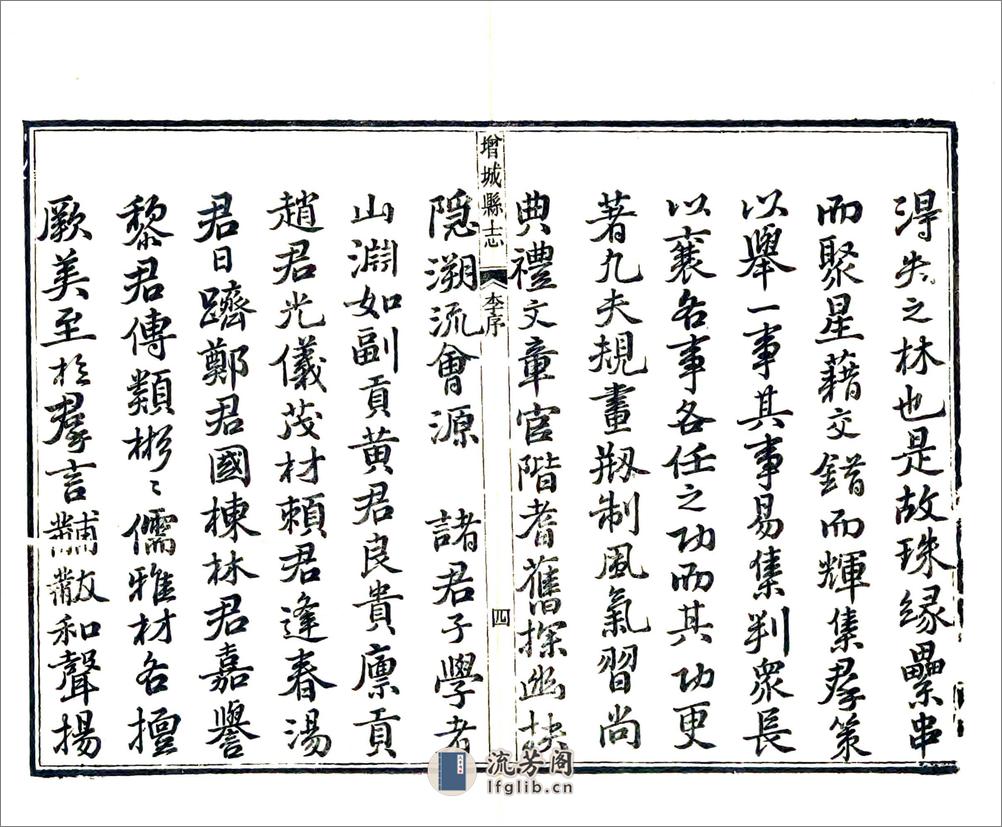 得失之林也是故珠緣纍串
而聚星藉交錯而輝集羣策
以舉一事其事易集判衆長
以襄各事各任之功而其功更
著九夫規畫剏制風氣習尚
典禮文章官階耆舊探幽抉
增城縣志
李序
四
隱溯流會源 諸君子學者
山淵如副貢黃君良貴廪貢
趙君光儀茂材賴君逢春湯
君日躋鄭君國棟林君嘉譽
黎君傳類彬〻儒雅材各擅
厥美至於羣言黼黻和聲揚
流芳阁
lfglib.cn